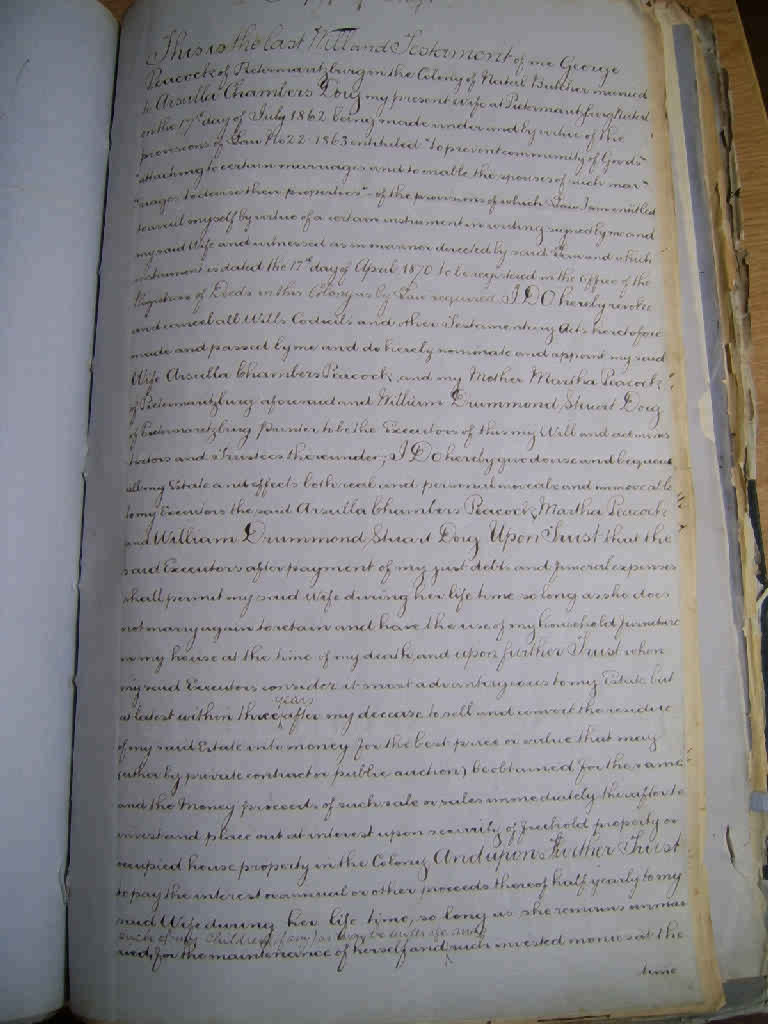 This is the last Will and Testament of me George
Peacock of Pietermaritzburg in the Colony of Natal Butcher married
to Arsulla Chambers Doig my present wife at Pietermaritzburg Natal
on the 17th day of July 1862 being made under and by virtue of the
provisions of Law No 22 1863 entituled "to prevent community of Goods"
"attaching to certain marriages and to enable the spouses of such mar"
"riages to devise their properties" of the provisions of which Law I am entitled
to avail myself by virtue of a certain instrument in writing signed by me and
my said Wife and witnessed as in manner directed by said Law and which
instrument is dated the 17th day of April 1870 to be registered in the office of the
Registrar of Deeds in this Colony as by Law required I DO hereby revoke
and cancel all Wills Codicils and other Testamentary Acts heretofore
made and passed by me and do hereby nominate and appoint my said
Wife Arsulla Chambers Peacock, and my Mother Martha Peacock
of Pietermaritzburg aforesaid and William Drummond Stuart Doig
of Pietermaritzburg Printer to be the Executors of this my Will and adminis
trators and Trustees thereunder; I DO hereby give devise and bequeath
all my Estate and effects both real and personal moveable and immoveable
to my Executors the said Arsulla Chambers Peacock, Martha Peacock
and William Drummond Stuart Doig Upon Trust that the
said Executors after payment of my just debts and funeral expenses
shall permit my said Wife during her life time so long as she does
not marry again to retain and have the use of my household furniture
in my house at the time of my death, and upon further Trust when
my said Executors consider it most advantageous to my Estate but
years
at latest within three after my decease to sell and convert the residue
of my said Estate into money for the best price or value that may
(either by private contract or public auction) be obtained for the same
and the Money proceeds of such sale or sales immediately thereafter to
invest and place out at interest upon security of freehold property or
occupied house property in the Colony And upon Further Trust
to pay the interest or annual or other proceeds thereof half yearly to my
said Wife during her life time, so long as she remains unmar
such of my Children if any as may be under age and
ried, for the maintenance of herself and such invested monies at the
time